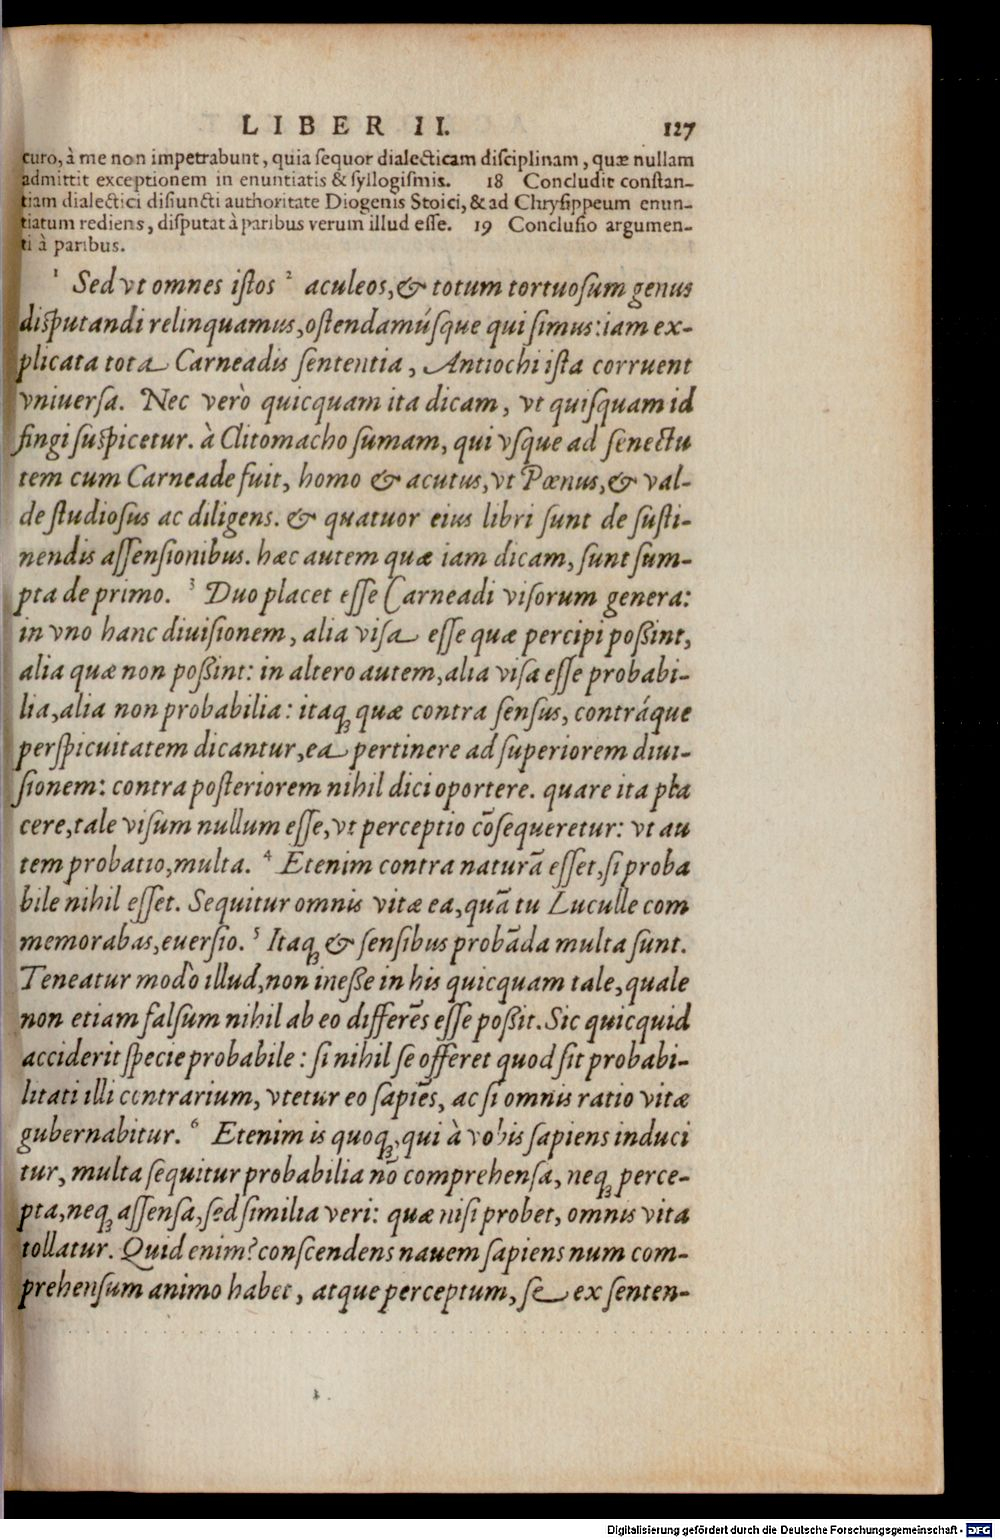 LIBER II. 127
curo, à me non impetrabunt, quia sequor dialecticam disciplinam, quæ nullam
admittit exceptionem in enuntiatis & syllogismis. 18 Concludit constan-
tiam dialectici disiuncti authoritate Diogenis Stoici, & ad Chrysippeum enun-
tiatum rediens, disputat à paribus verum illud esse. 19 Conclusio argumen-
ti à paribus.
¹ Sed vt omnes istos ² aculeos, & totum tortuosum genus
disputandi relinquamus, ostendamúsque qui simus: iam ex-
plicata tota Carneadis sententia, Antiochi ista corruent
vniuersa. Nec verò quicquam ita dicam, vt quisquam id
fingi suspicetur. à Clitomacho sumam, qui vsque ad senectu
tem cum Carneade fuit, homo & acutus, vt Pœnus, & val-
de studiosus ac diligens. & quatuor eius libri sunt de susti-
nendis assensionibus. hæc autem quæ iam dicam, sunt sum-
pta de primo. ³ Duo placet esse Carneadi visorum genera:
in vno hanc diuisionem, alia visa esse quæ percipi poßint,
alia quæ non poßint: in altero autem, alia visa esse probabi-
lia, alia non probabilia: itaq; quæ contra sensus, contráque
perspicuitatem dicantur, ea pertinere ad superiorem diui-
sionem: contra posteriorem nihil dici oportere. quare ita pla
cere, tale visum nullum esse, vt perceptio cõsequeretur: vt au
tem probatio, multa. ⁴ Etenim contra naturã esset, si proba
bile nihil esset. Sequitur omnis vitæ ea, quã tu Luculle com
memorabas, euersio. ⁵ Itaq; & sensibus probãda multa sunt.
Teneatur modò illud, non ineße in his quicquam tale, quale
non etiam falsum nihil ab eo differẽs esse poßit. Sic quicquid
acciderit specie probabile: si nihil se offeret quod sit probabi-
litati illi contrarium, vtetur eo sapiẽs, ac si omnis ratio vitæ
gubernabitur. ⁶ Etenim is quoq; qui à vobis sapiens induci
tur, multa sequitur probabilia nõ comprehensa, neq; perce-
pta, neq; assensa, sed similia veri: quæ nisi probet, omnis vita
tollatur. Quid enim? conscendens nauem sapiens num com-
prehensum animo habet, atque perceptum, se ex senten-
Digitalisierung gefördert durch die Deutsche Forschungsgemeinschaft - DFG